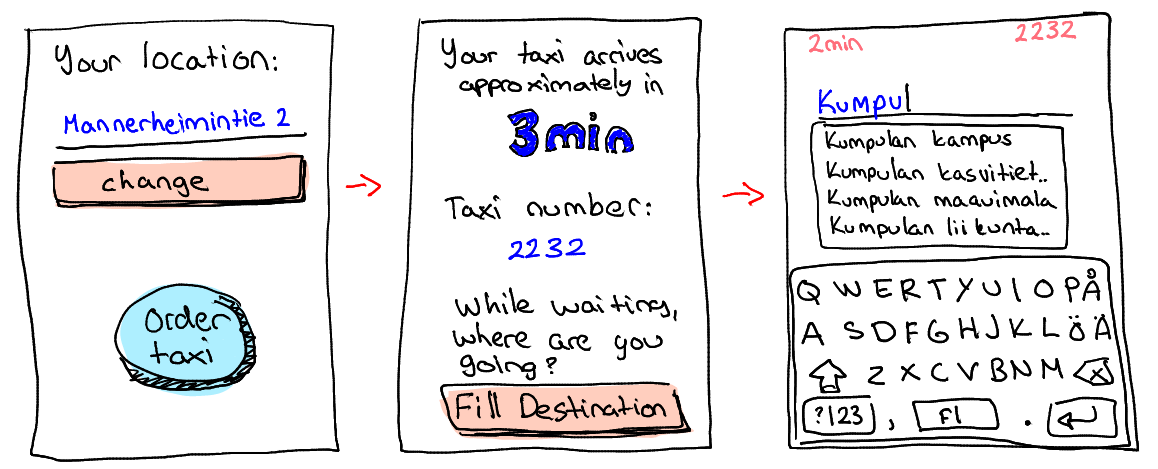 Your location:
Mannerheimintie 2
change
Order
taxi
Your taxi arrives
approximately in
3min
Taxi number:
2232
While waiting,
where are you
going?
Fill Destination
2min 2232
Kumpul
Kumpulan kampus
Kumpulan kasvitiet..
Kumpulan maauimala
Kumpulan liikunta..
Q W E R T Y U I O P Å
A S D F G H J K L Ö Ä
Z X C V B N M
?123 , FI .